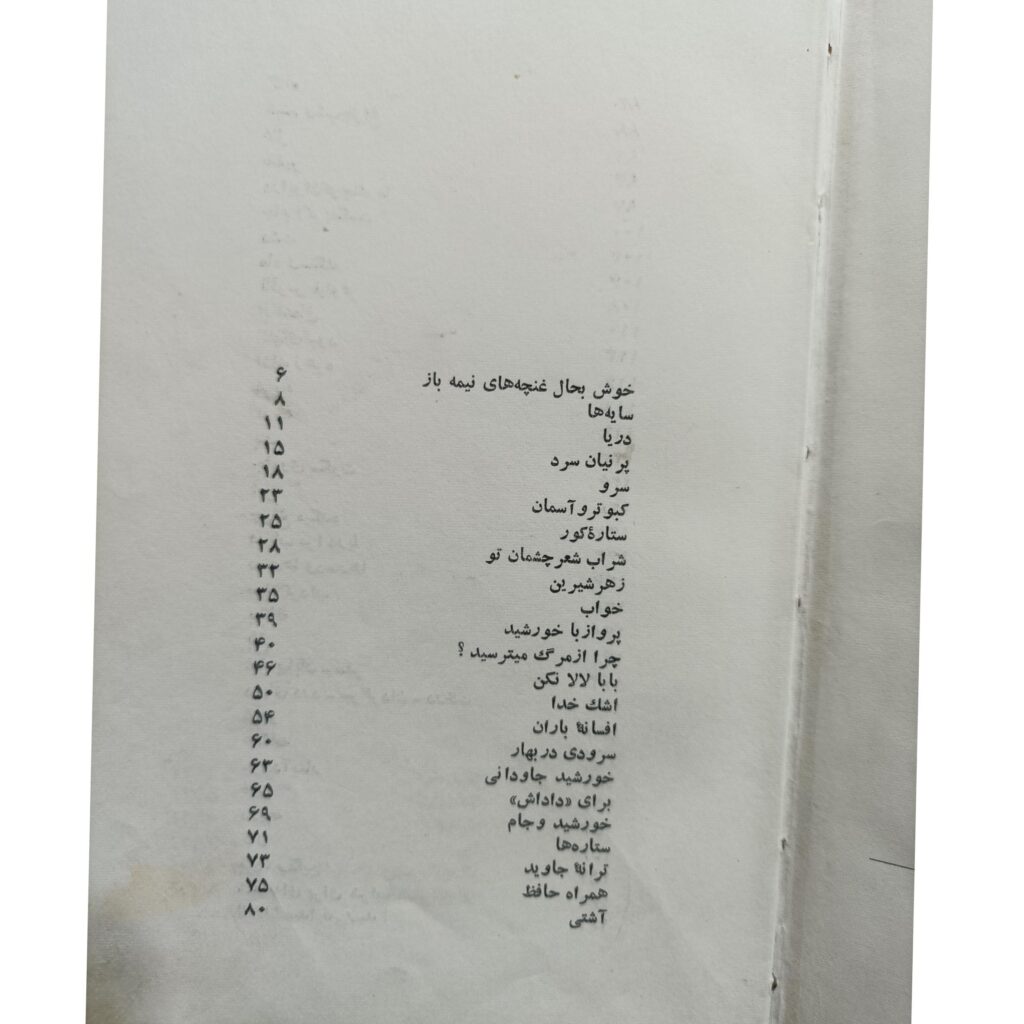 خوش بحال غنچه‌های نیمه باز ۶
سایه‌ها ۸
دریا ۱۱
پرنیان سرد ۱۵
سرو ۱۸
کبوتر و آسمان ۲۳
ستارهٔ کور ۲۵
شراب شعر چشمان تو ۲۸
زهر شیرین ۳۲
خواب ۳۵
پرواز با خورشید ۳۹
چرا از مرگ میترسید ؟ ۴۰
بابا لالا نکن ۴۶
اشک خدا ۵۰
افسانهٔ باران ۵۴
سرودی در بهار ۶۰
خورشید جاودانی ۶۳
برای «داداش» ۶۵
خورشید و جام ۶۹
ستاره‌ها ۷۱
ترانهٔ جاوید ۷۳
همراه حافظ ۷۵
آشتی ۸۰